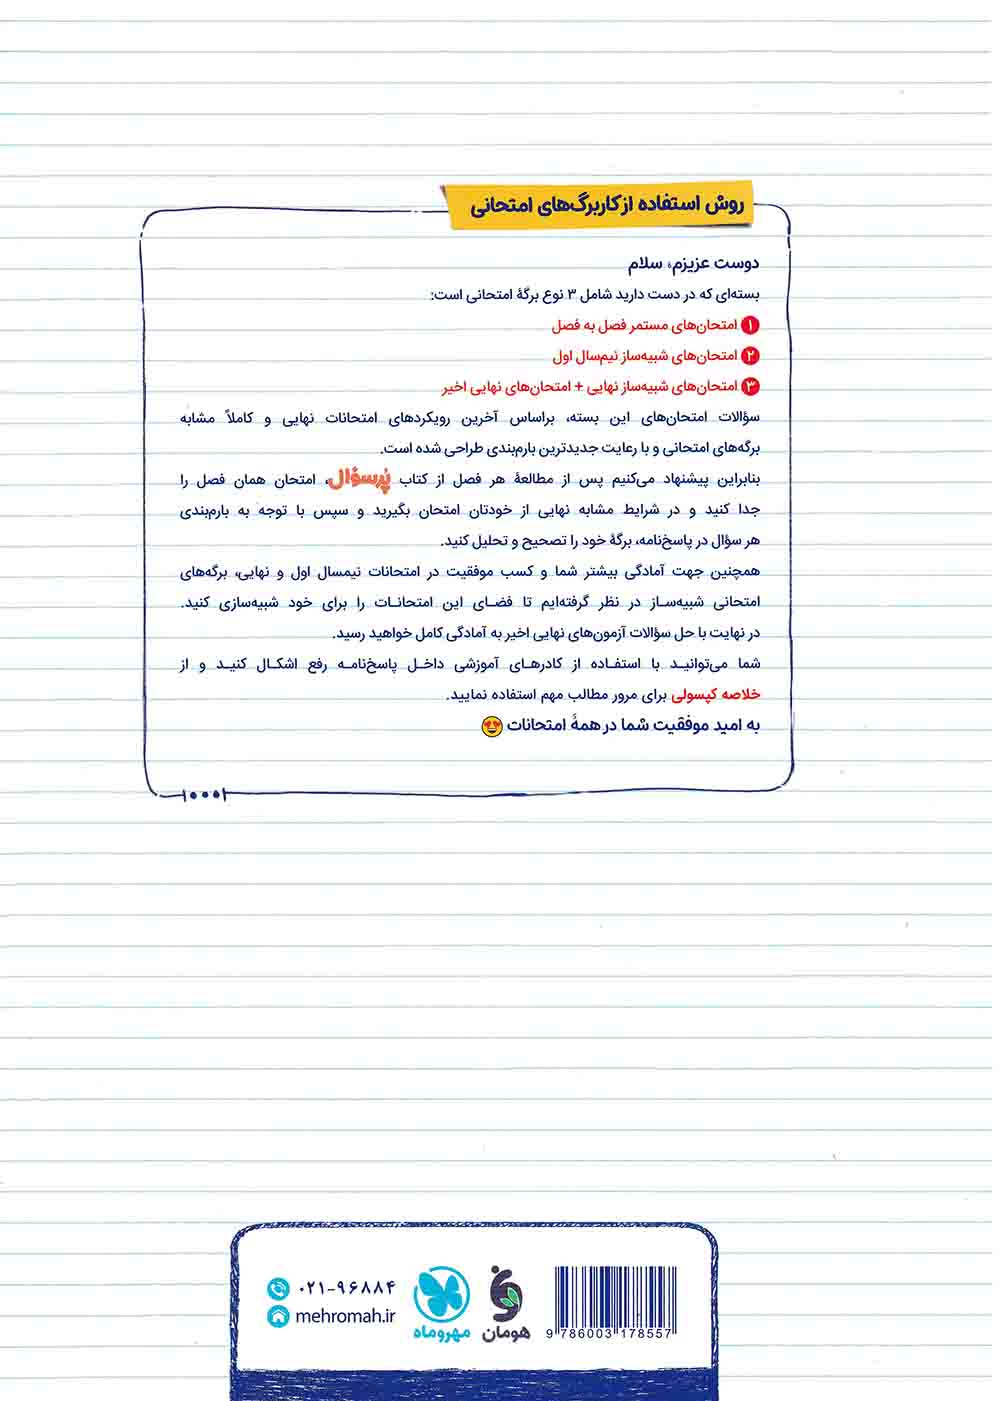 روش استفاده از کاربرگ‌های امتحانی
دوست عزیزم، سلام
بسته‌ای که در دست دارید شامل ۳ نوع برگهٔ امتحانی است:
۱ امتحان‌های مستمر فصل به فصل
۲ امتحان‌های شبیه‌ساز نیم‌سال اول
۳ امتحان‌های شبیه‌ساز نهایی + امتحان‌های نهایی اخیر
سؤالات امتحان‌های این بسته، براساس آخرین رویکردهای امتحانات نهایی و کاملاً مشابه
برگه‌های امتحانی و با رعایت جدیدترین بارم‌بندی طراحی شده است.
بنابراین پیشنهاد می‌کنیم پس از مطالعهٔ هر فصل از کتاب پُرسؤال، امتحان همان فصل را
جدا کنید و در شرایط مشابه نهایی از خودتان امتحان بگیرید و سپس با توجه به بارم‌بندی
هر سؤال در پاسخ‌نامه، برگهٔ خود را تصحیح و تحلیل کنید.
همچنین جهت آمادگی بیشتر شما و کسب موفقیت در امتحانات نیمسال اول و نهایی، برگه‌های
امتحانی شبیه‌سـاز در نظر گرفته‌ایم تا فضـای این امتحانـات را برای خود شبیه‌سازی کنید.
در نهایت با حل سؤالات آزمون‌های نهایی اخیر به آمادگی کامل خواهید رسید.
شما می‌توانیـد با استفـاده از کادرهـای آموزشی داخـل پاسخ‌نامـه رفع اشکـال کنیـد و از
خلاصه کپسولی برای مرور مطالب مهم استفاده نمایید.
به امید موفقیت شما در همهٔ امتحانات 😍
۰۲۱-۹۶۸۸۴
mehromah.ir
مهروماه
هومان
9 786003 178557